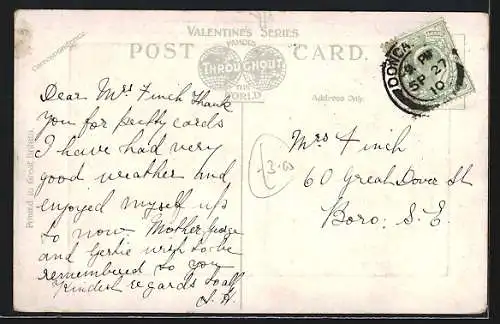 VALENTINE'S SERIES
FAMOUS
POST CARD.
THROUGHOUT
THE
WORLD
Correspondence.
Address Only.
Printed in Great Britain.
8 PM
SP 27
10
Dear Mrs Finch Thank
you for pretty cards
I have had very
good weather and
enjoyed myself up
to now Mother
and Gertie wish to be
remembered to you
Kindest regards to all
S. H.
3.00
Mrs Finch
60 Great Dover St
Boro: S. E.